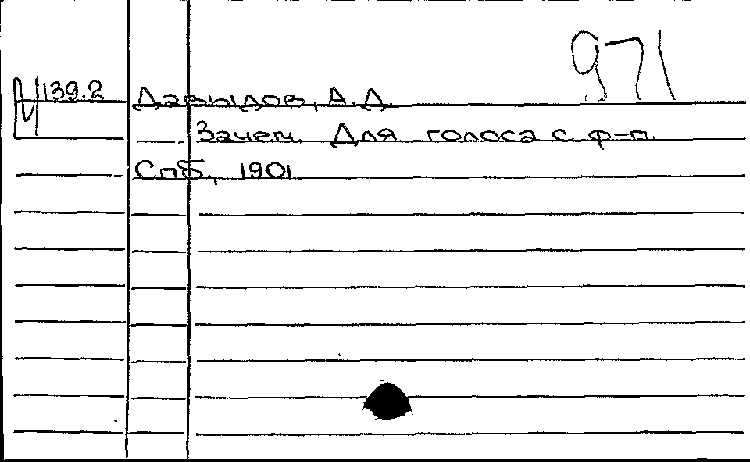 971
И139.2 Давыдов, А.Д.
Зачем. Для голоса с ф-п.
Спб, 1901